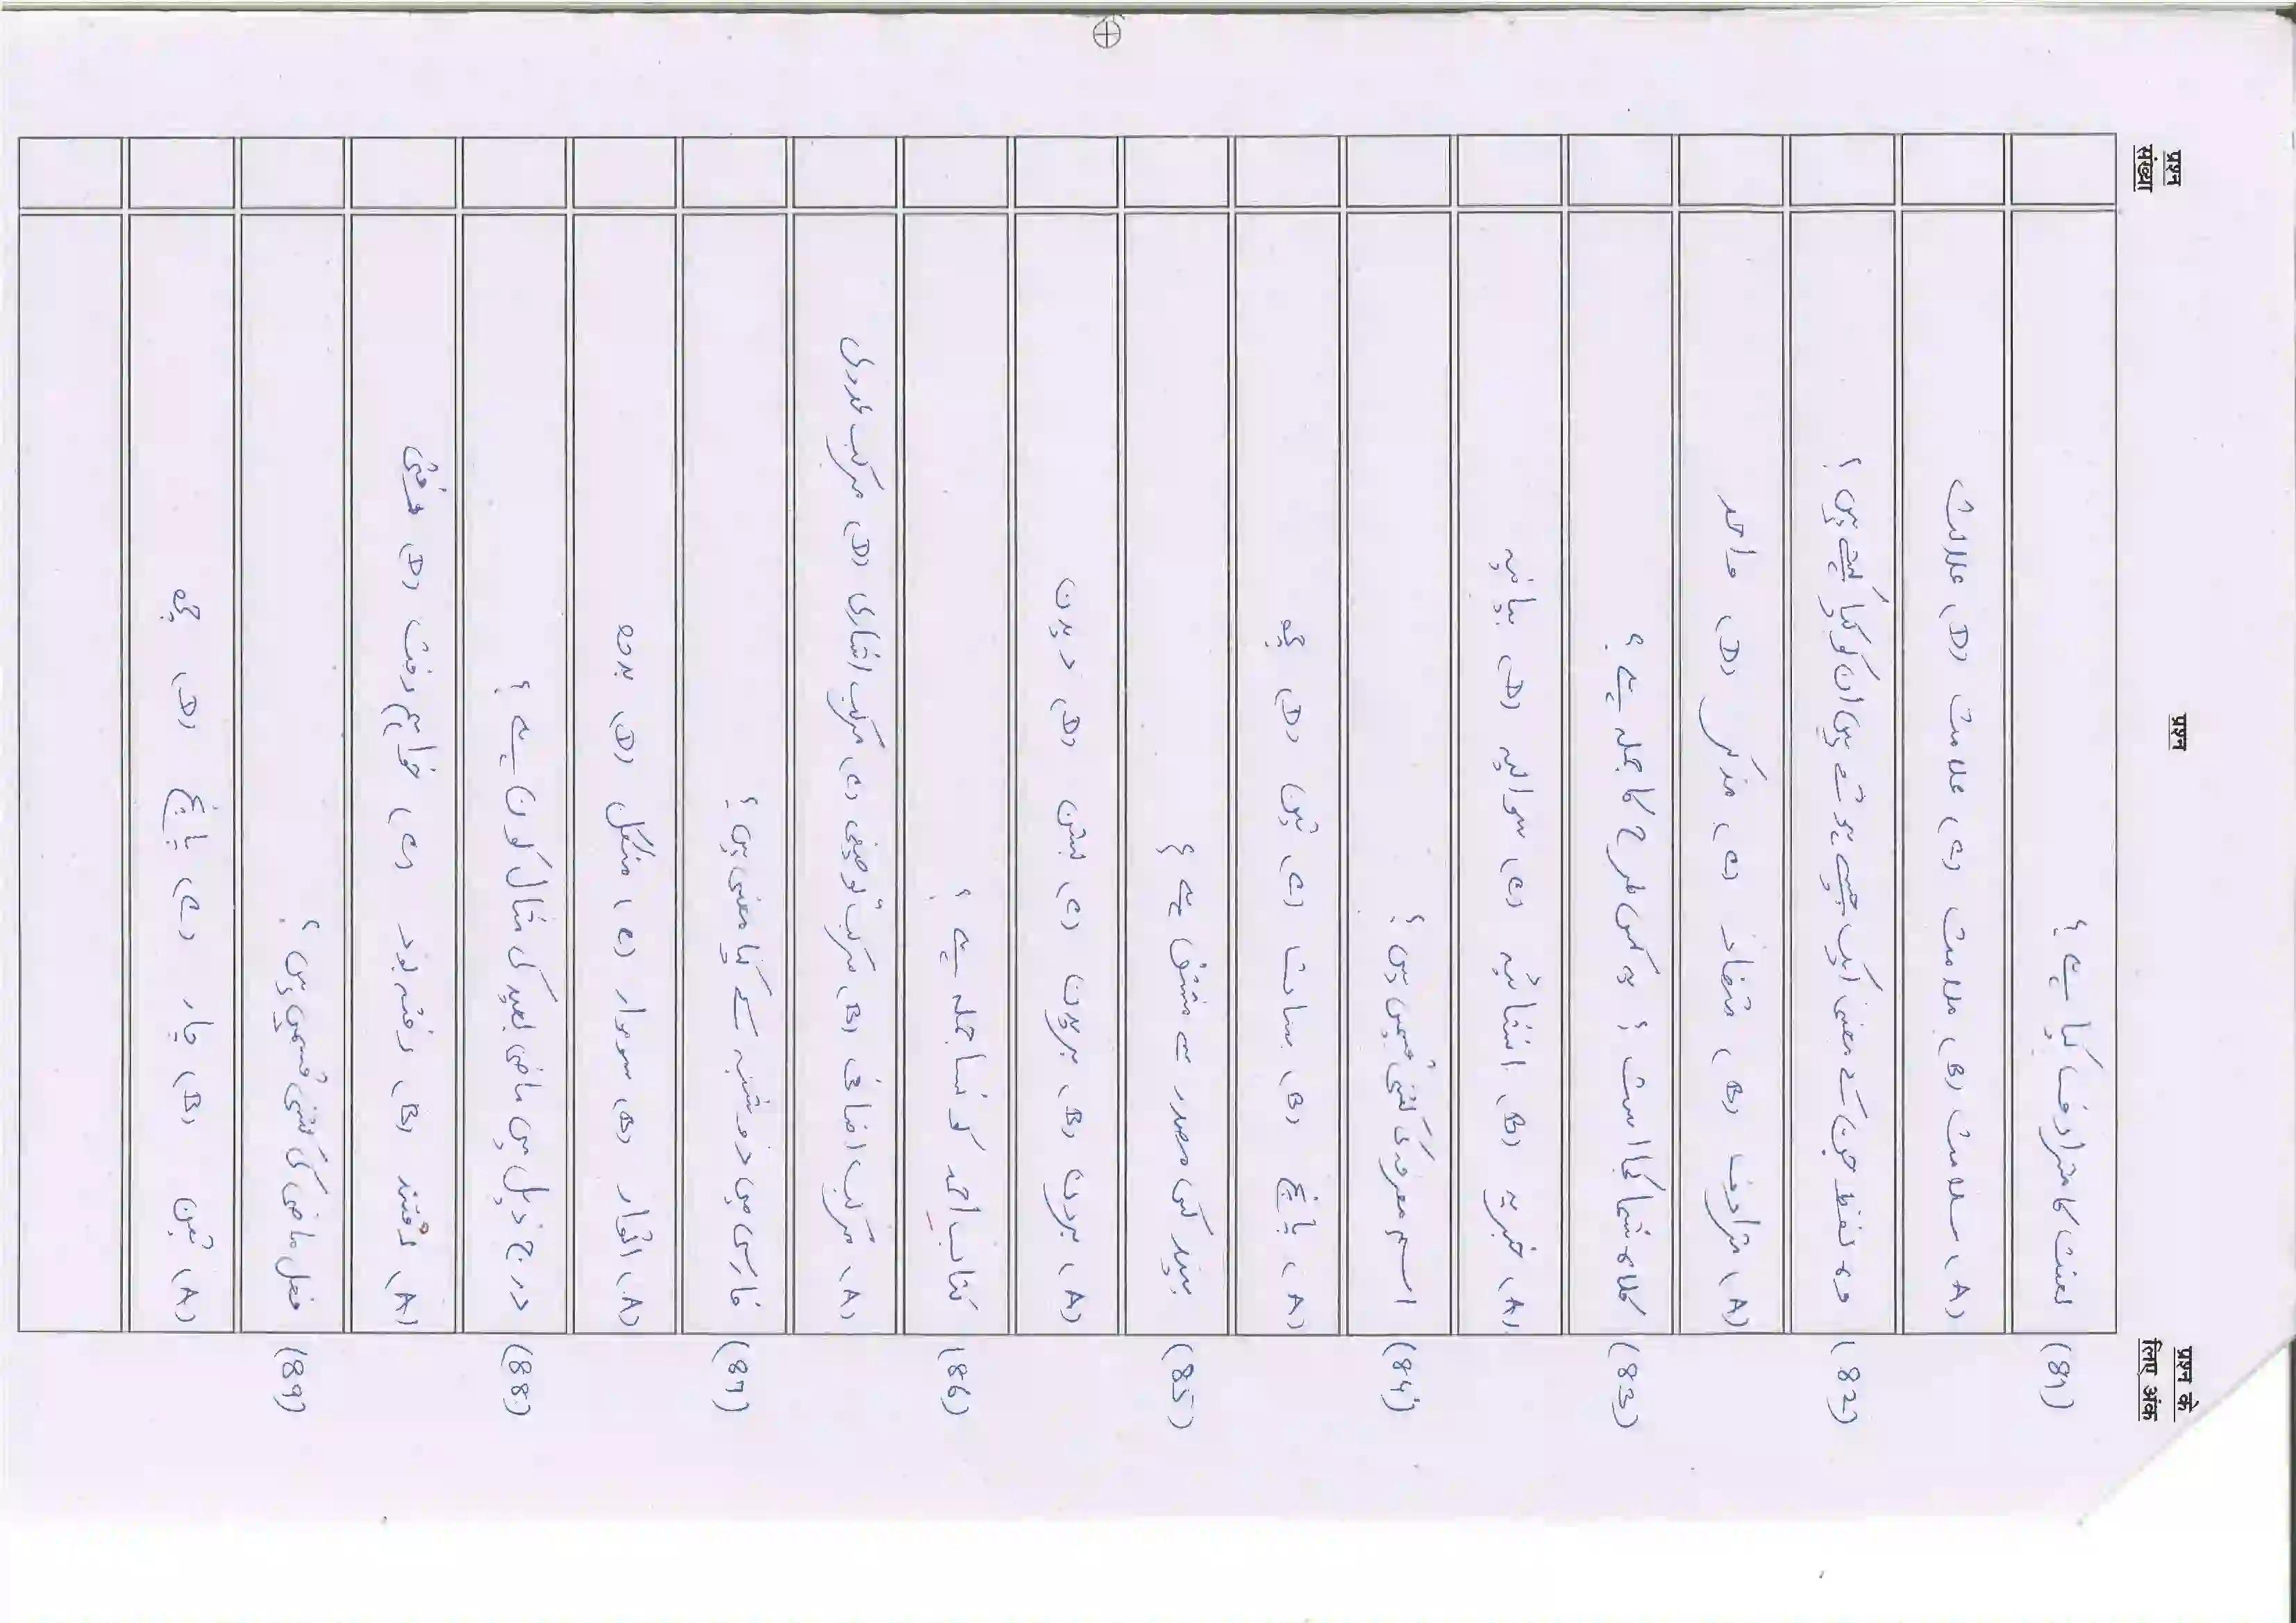 प्रश्न के लिए अंक
प्रश्न
प्रश्न संख्या
(81) لعنت کا مترادف کیا ہے ؟
(A) سلامت (B) ملامت (C) علامت (D) علالت
(82) وہ لفظ جن کے معنی ایک جیسے ہوتے ہیں ان کو کیا کہتے ہیں ؟
(A) مترادف (B) متضاد (C) مذکر (D) واحد
(83) کلاہ شما کجا است ؟ یہ کس طرح کا جملہ ہے ؟
(A) خبریہ (B) انشائیہ (C) سوالیہ (D) بیانیہ
(84) اسم معرفہ کی کتنی قسمیں ہیں ؟
(A) پانچ (B) سات (C) تین (D) چھ
(85) بیند کس مصدر سے مشتق ہے ؟
(A) بردن (B) بریدن (C) بستن (D) دیدن
(86) کتاب احمد کونسا جملہ ہے ؟
(A) مرکب اضافی (B) مرکب توصیفی (C) مرکب اشاری (D) مرکب عددی
(87) فارسی میں دوشنبہ کے کیا معنی ہیں ؟
(A) اتوار (B) سوموار (C) منگل (D) بدھ
(88) درج ذیل میں ماضی بعید کی مثال کون ہے ؟
(A) رفتند (B) رفتہ بود (C) خواہم رفت (D)
(89) فعل ماضی کی کتنی قسمیں ہیں ؟
(A) تین (B) چار (C) پانچ (D) چھ